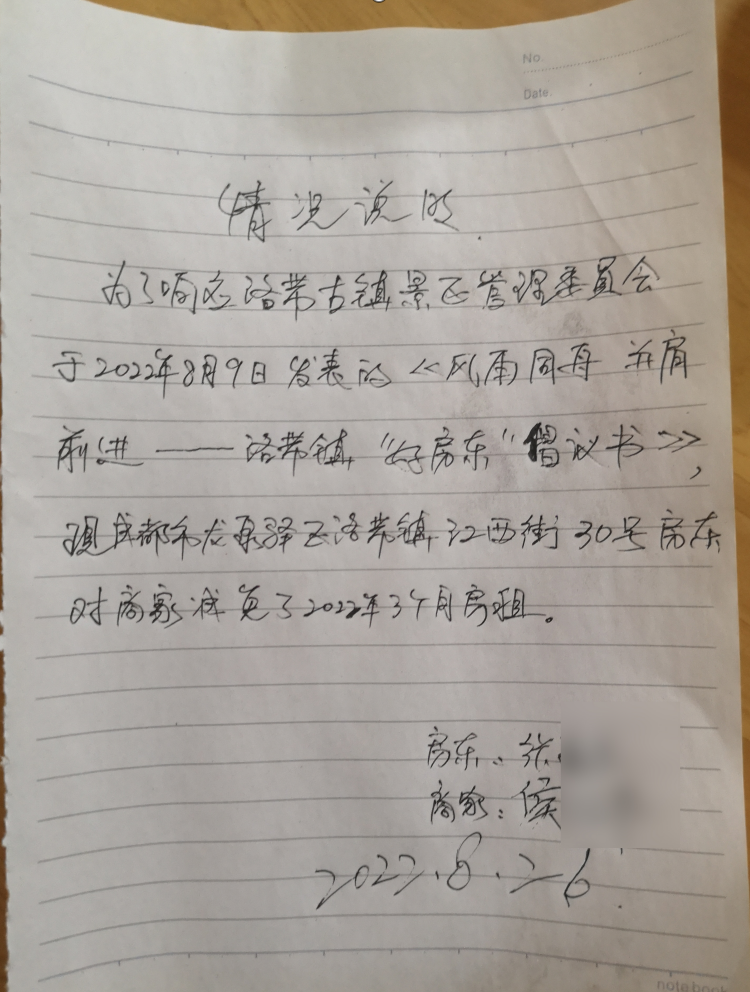 No.
Date.
情况说明
为了响应洛带古镇景区管理委员会
于2022年8月9日发表的《风雨同舟 并肩
前进——洛带镇"好房东"倡议书》,
现成都市龙泉驿区洛带镇江西街30号房东
对商家减免了2022年3个月房租。
房东:张
商家:侯
2022.8.26
notebook